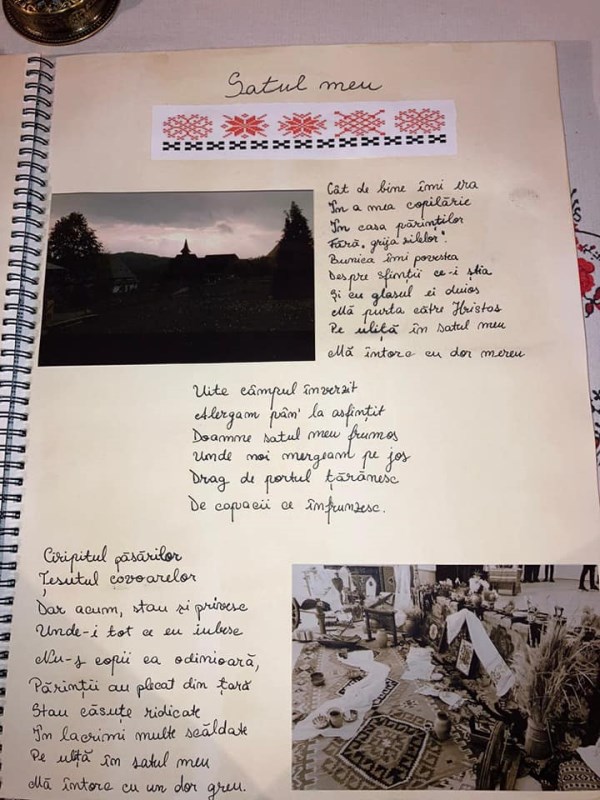 Satul meu
Cât de bine îmi era
În a mea copilărie
În casa părinților
Fără „grija zilelor".
Bunica îmi povestea
Despre sfinții ce-i știa
Și cu glasul ei duios
Mă purta către Hristos
Pe uliță în satul meu
Mă întorc cu dor mereu
Uite câmpul înverzit
Alergam pân' la asfințit
Doamne satul meu frumos
Unde noi mergeam pe jos
Drag de portul țărănesc
De copacii ce înfrunzesc.
Ciripitul păsărilor
Țesutul covoarelor
Dar acum, stau și privesc
Unde-i tot ce eu iubesc
Nu-s copii ca odinioară,
Părinții au plecat din țară
Stau căsuțe ridicate
În lacrimi multe scăldate
Pe ulță în satul meu
Mă întorc cu un dor greu.